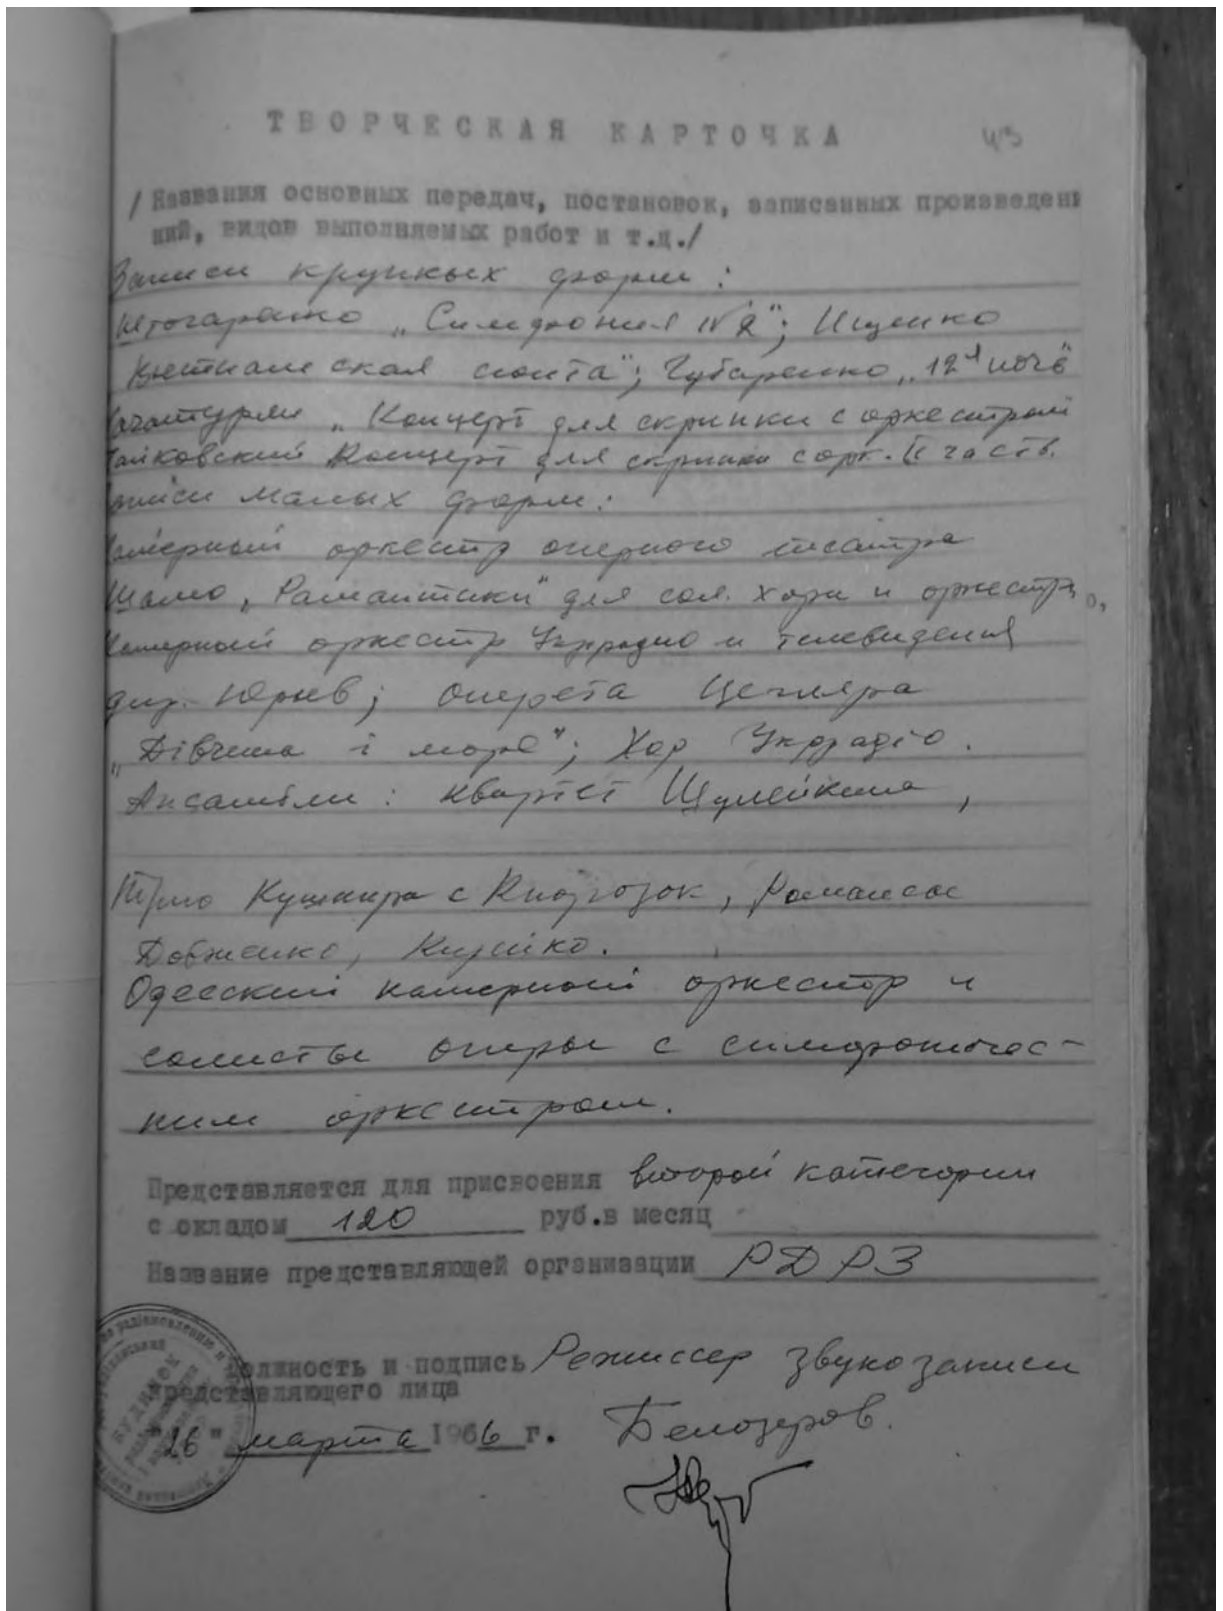 ТВОРЧЕСКАЯ КАРТОЧКА
/Названия основных передач, постановок, записанных произведени
ний, видов выполняемых работ и т.д./
Записи крупных форм:
Штогаренко „Симфония №2"; Ищенко
Вьетнамская сюита"; Губаренко „12я ночь"
Хачатурян „Концерт для скрипки с оркестром
Чайковский Концерт для скрипки с орк. II часть.
Записи малых форм:
Камерный оркестр оперного театра
Шамо „Романтики" для сол. хора и оркестра,
Камерный оркестр Укррадио и телевидения
дир. оперета Цегляра
„Дівчина і море"; Хор Укррадіо.
Ансамбли: квартет
Трио Кушнира с Романсы
Довженко,
Одесский камерный оркестр и
солисты оперы с симфоничес-
ким оркестром.
Представляется для присвоения второй категории
с окладом 120 руб.в месяц
Название представляющей организации РДРЗ
Должность и подпись Режиссер звукозаписи
представляющего лица
"26" марта 1966 г. Белозеров.